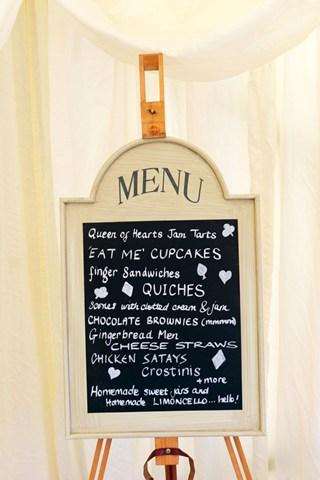 MENU
Queen of Hearts Jam Tarts
'EAT ME' CUPCAKES
finger Sandwiches
QUICHES
Scones with clotted cream & jam
CHOCOLATE BROWNIES (mmmm)
Gingerbread Men
CHEESE STRAWS
CHICKEN SATAYS
Crostinis
+ more
Homemade sweet jars and
Homemade LIMONCELLO... help!